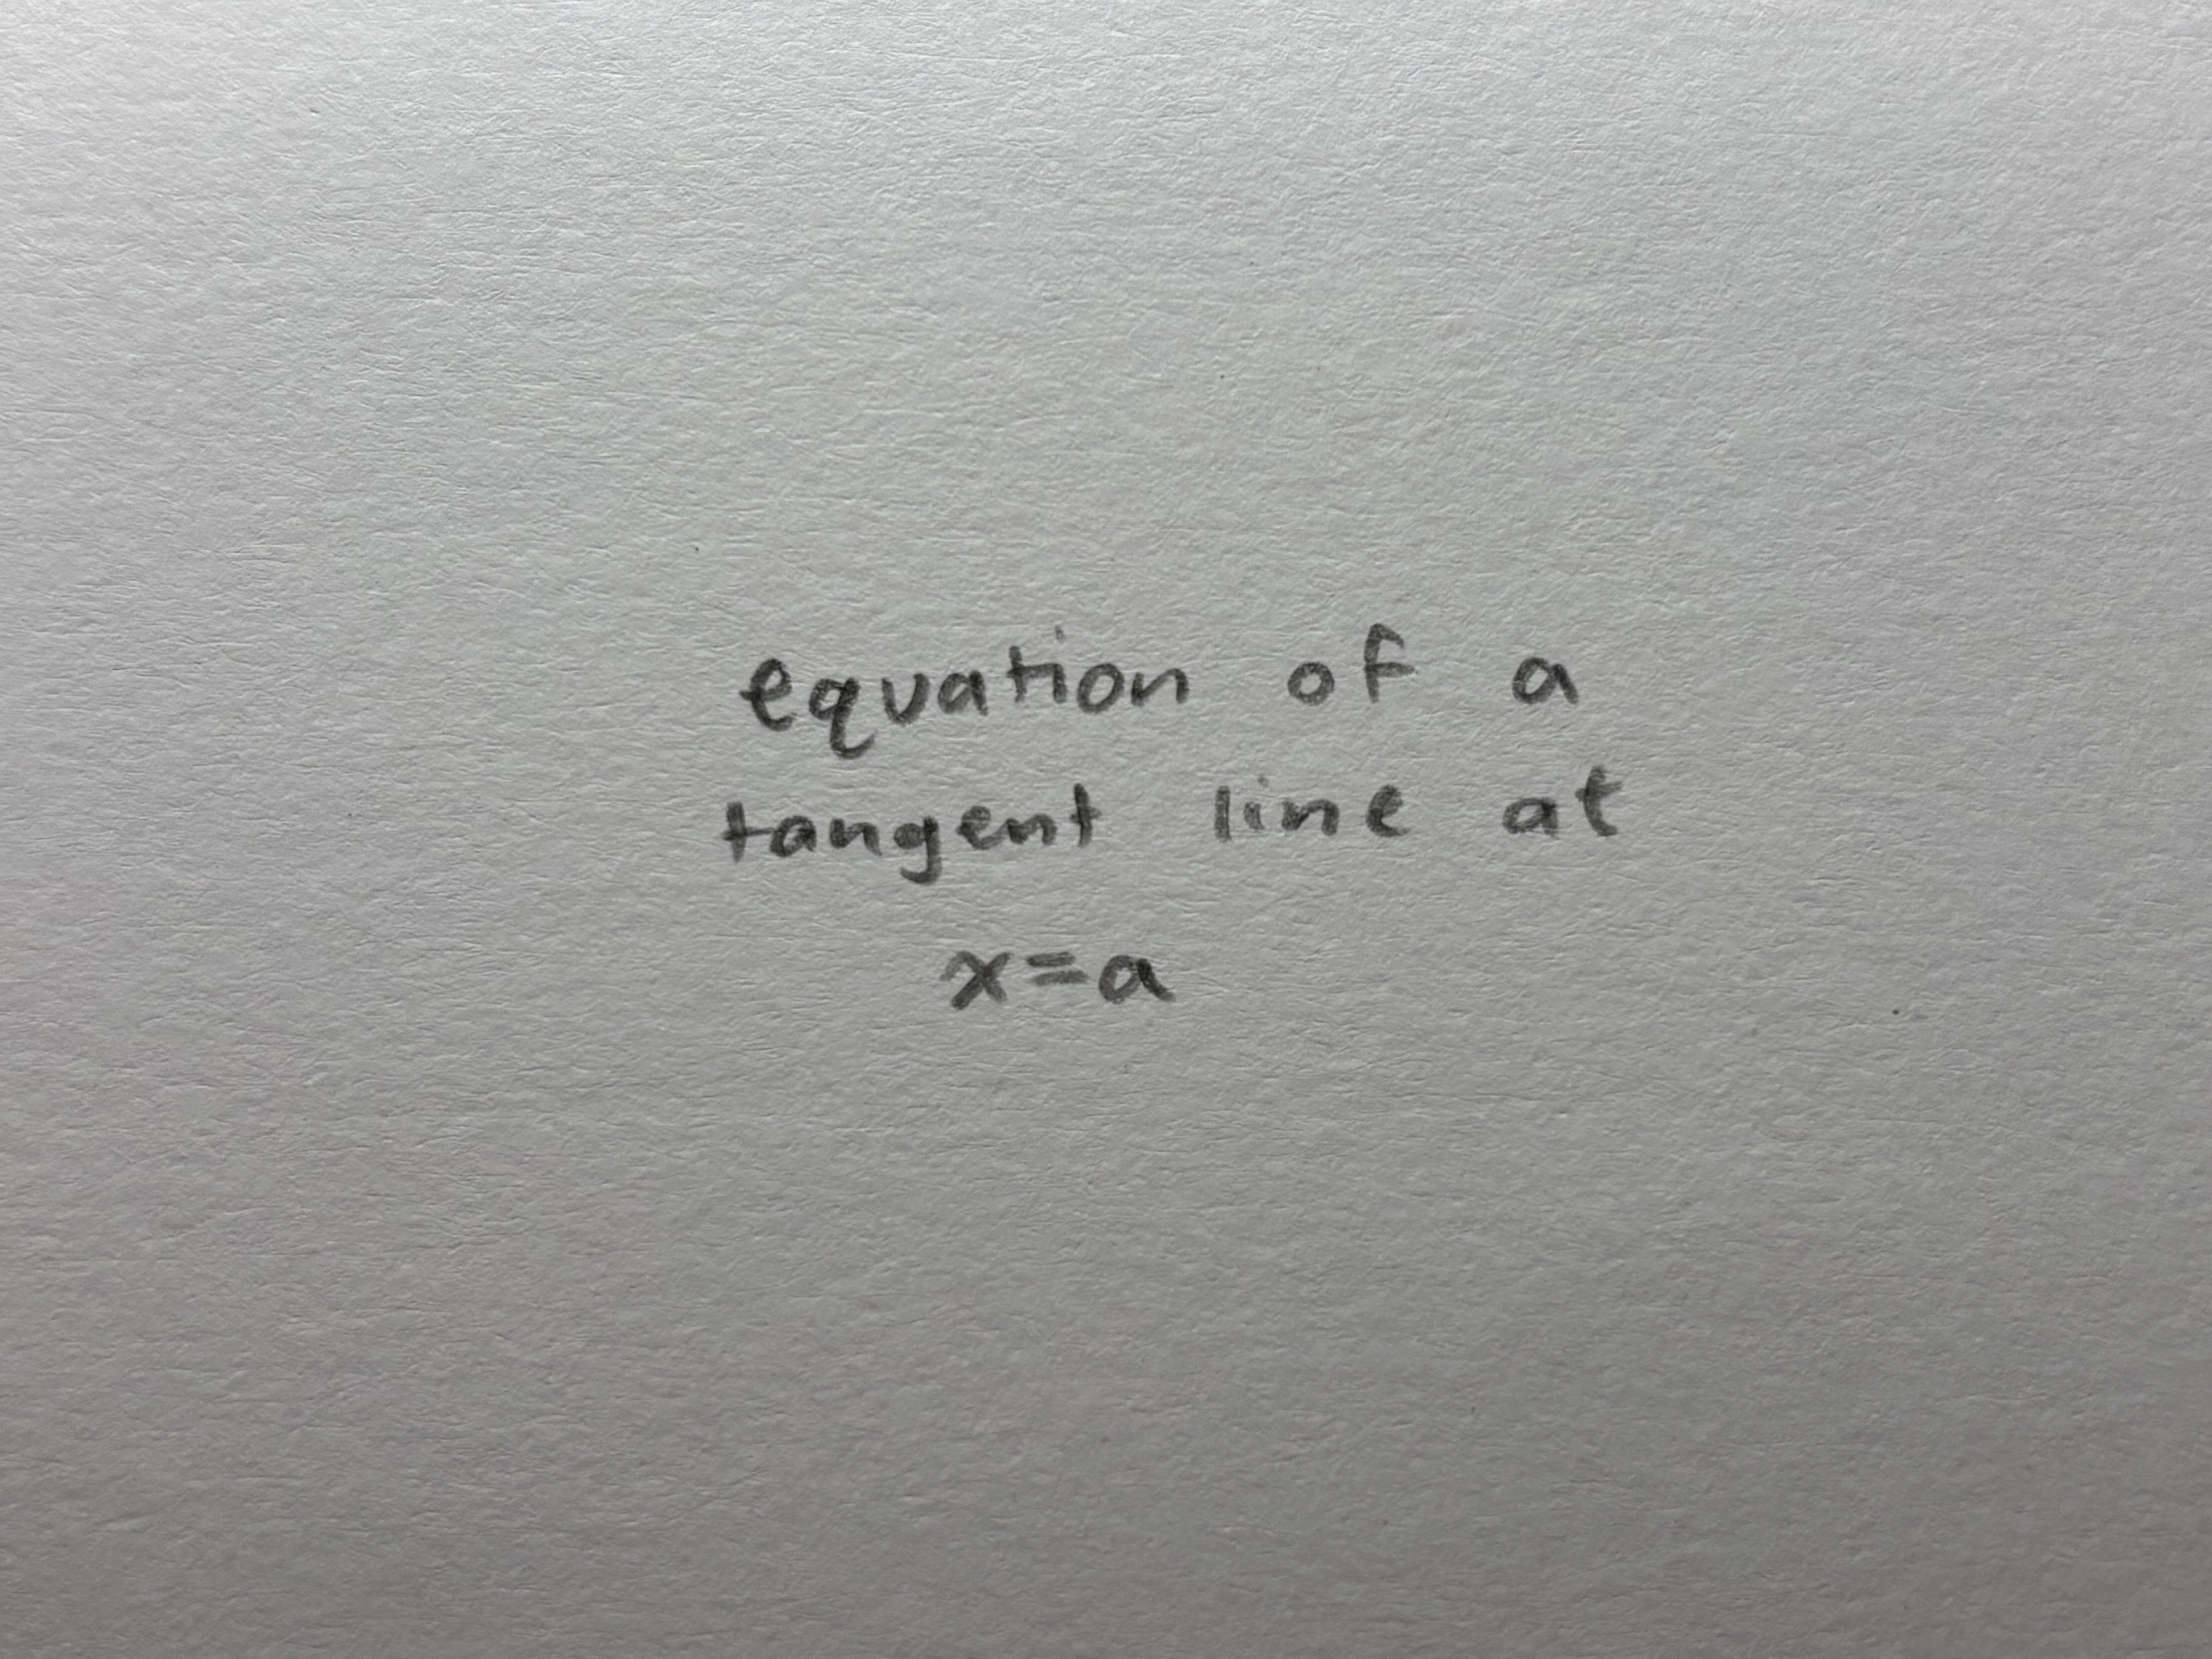 equation of a
tangent line at
x=a